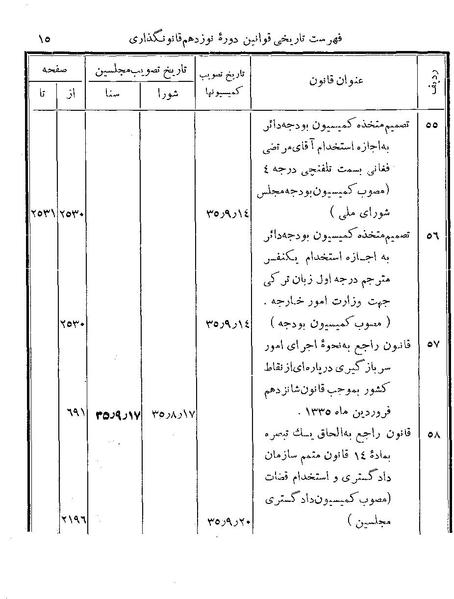 فهرست تاریخی قوانین دورهٔ نوزدهم قانونگذاری ۱۵
ردیف عنوان قانون تاریخ تصویب کمیسیونها تاریخ تصویب مجلسین صفحه
شورا سنا از تا
۵۵ تصمیم متخذه کمیسیون بودجه دائر
به اجازه استخدام آقای مرتضی
فغانی بسمت تلفنچی درجه ۴
(مصوب کمیسیون بودجه مجلس
شورای ملی) ۳۵٫۹٫۱۴ ۲۵۳۰ ۲۵۳۱
۵۶ تصمیم متخذه کمیسیون بودجه دائر
به اجازه استخدام یکنفر
مترجم درجه اول زبان ترکی
جهت وزارت امور خارجه .
(مصوب کمیسیون بودجه) ۳۵٫۹٫۱۴ ۲۵۳۰
۵۷ قانون راجع به نحوهٔ اجرای امور
سربازگیری در پاره‌ای از نقاط
کشور بموجب قانون شانزدهم
فروردین ماه ۱۳۳۵ . ۳۵٫۸٫۱۷ ۳۵٫۹٫۱۷ ۶۹۱
۵۸ قانون راجع به الحاق یک تبصره
بمادهٔ ۱۴ قانون متمم سازمان
دادگستری و استخدام قضات
(مصوب کمیسیون دادگستری
مجلسین) ۳۵٫۹٫۲۰ ۲۱۹۶